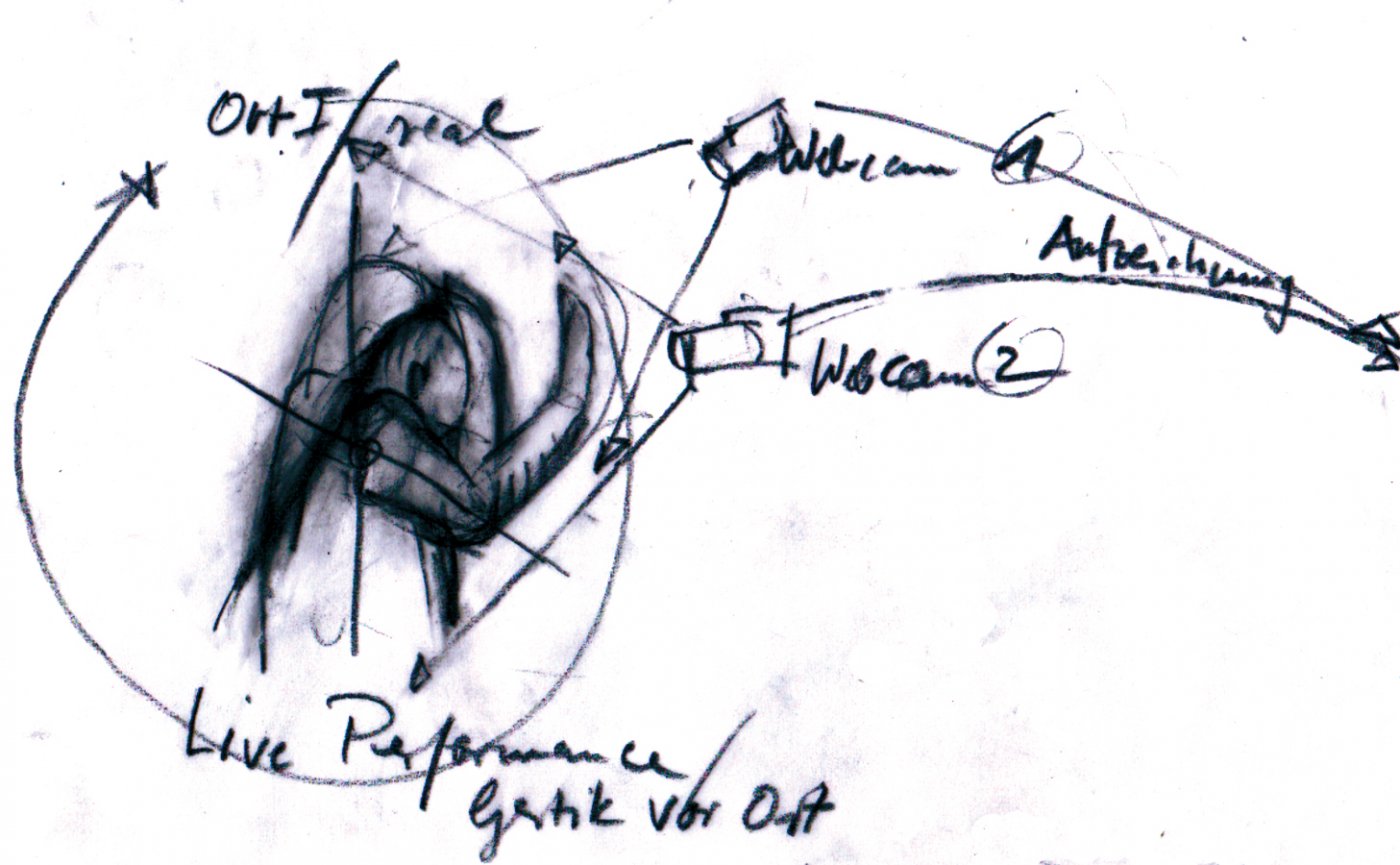 Ort I / real
Webcam 1
Aufzeichnung
Webcam 2
Live Performance /
Gestik vor Ort